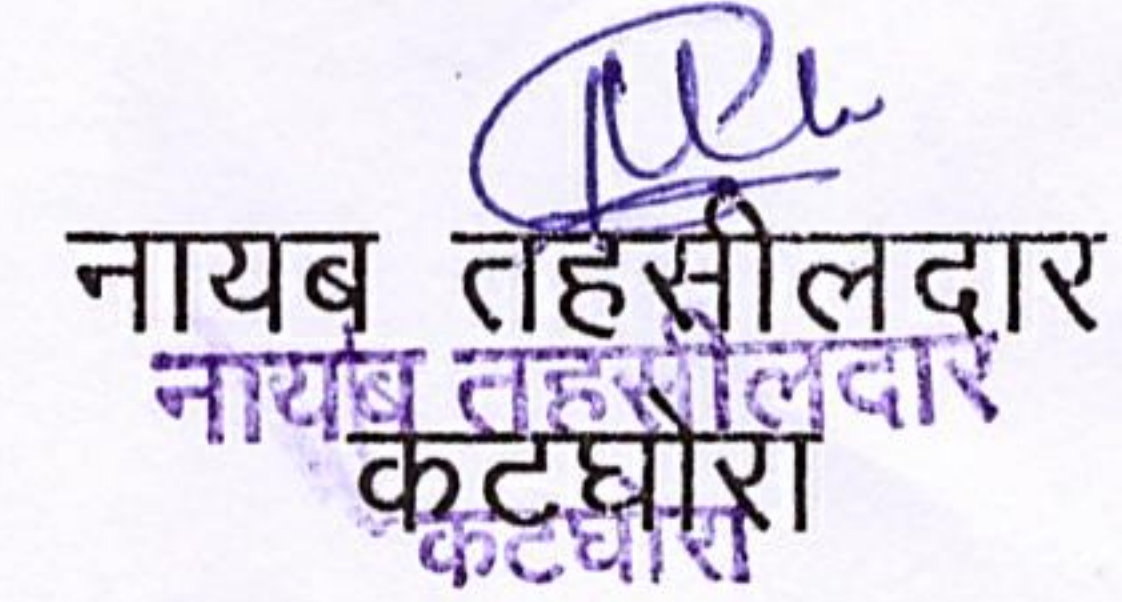 नायब तहसीलदार
नायब तहसीलदार
कटघोरा
कटघोरा